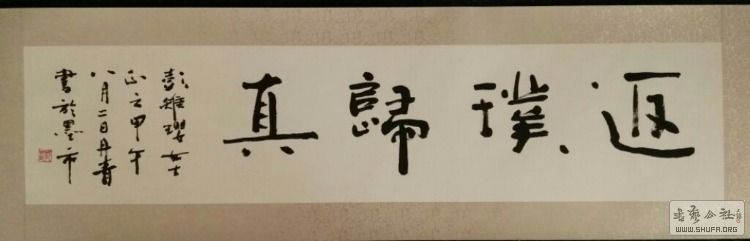 返璞歸真
彭維瓔女士
正之甲午
八月二日丹青
書於墨市
书艺公社
WWW.SHUFA.ORG